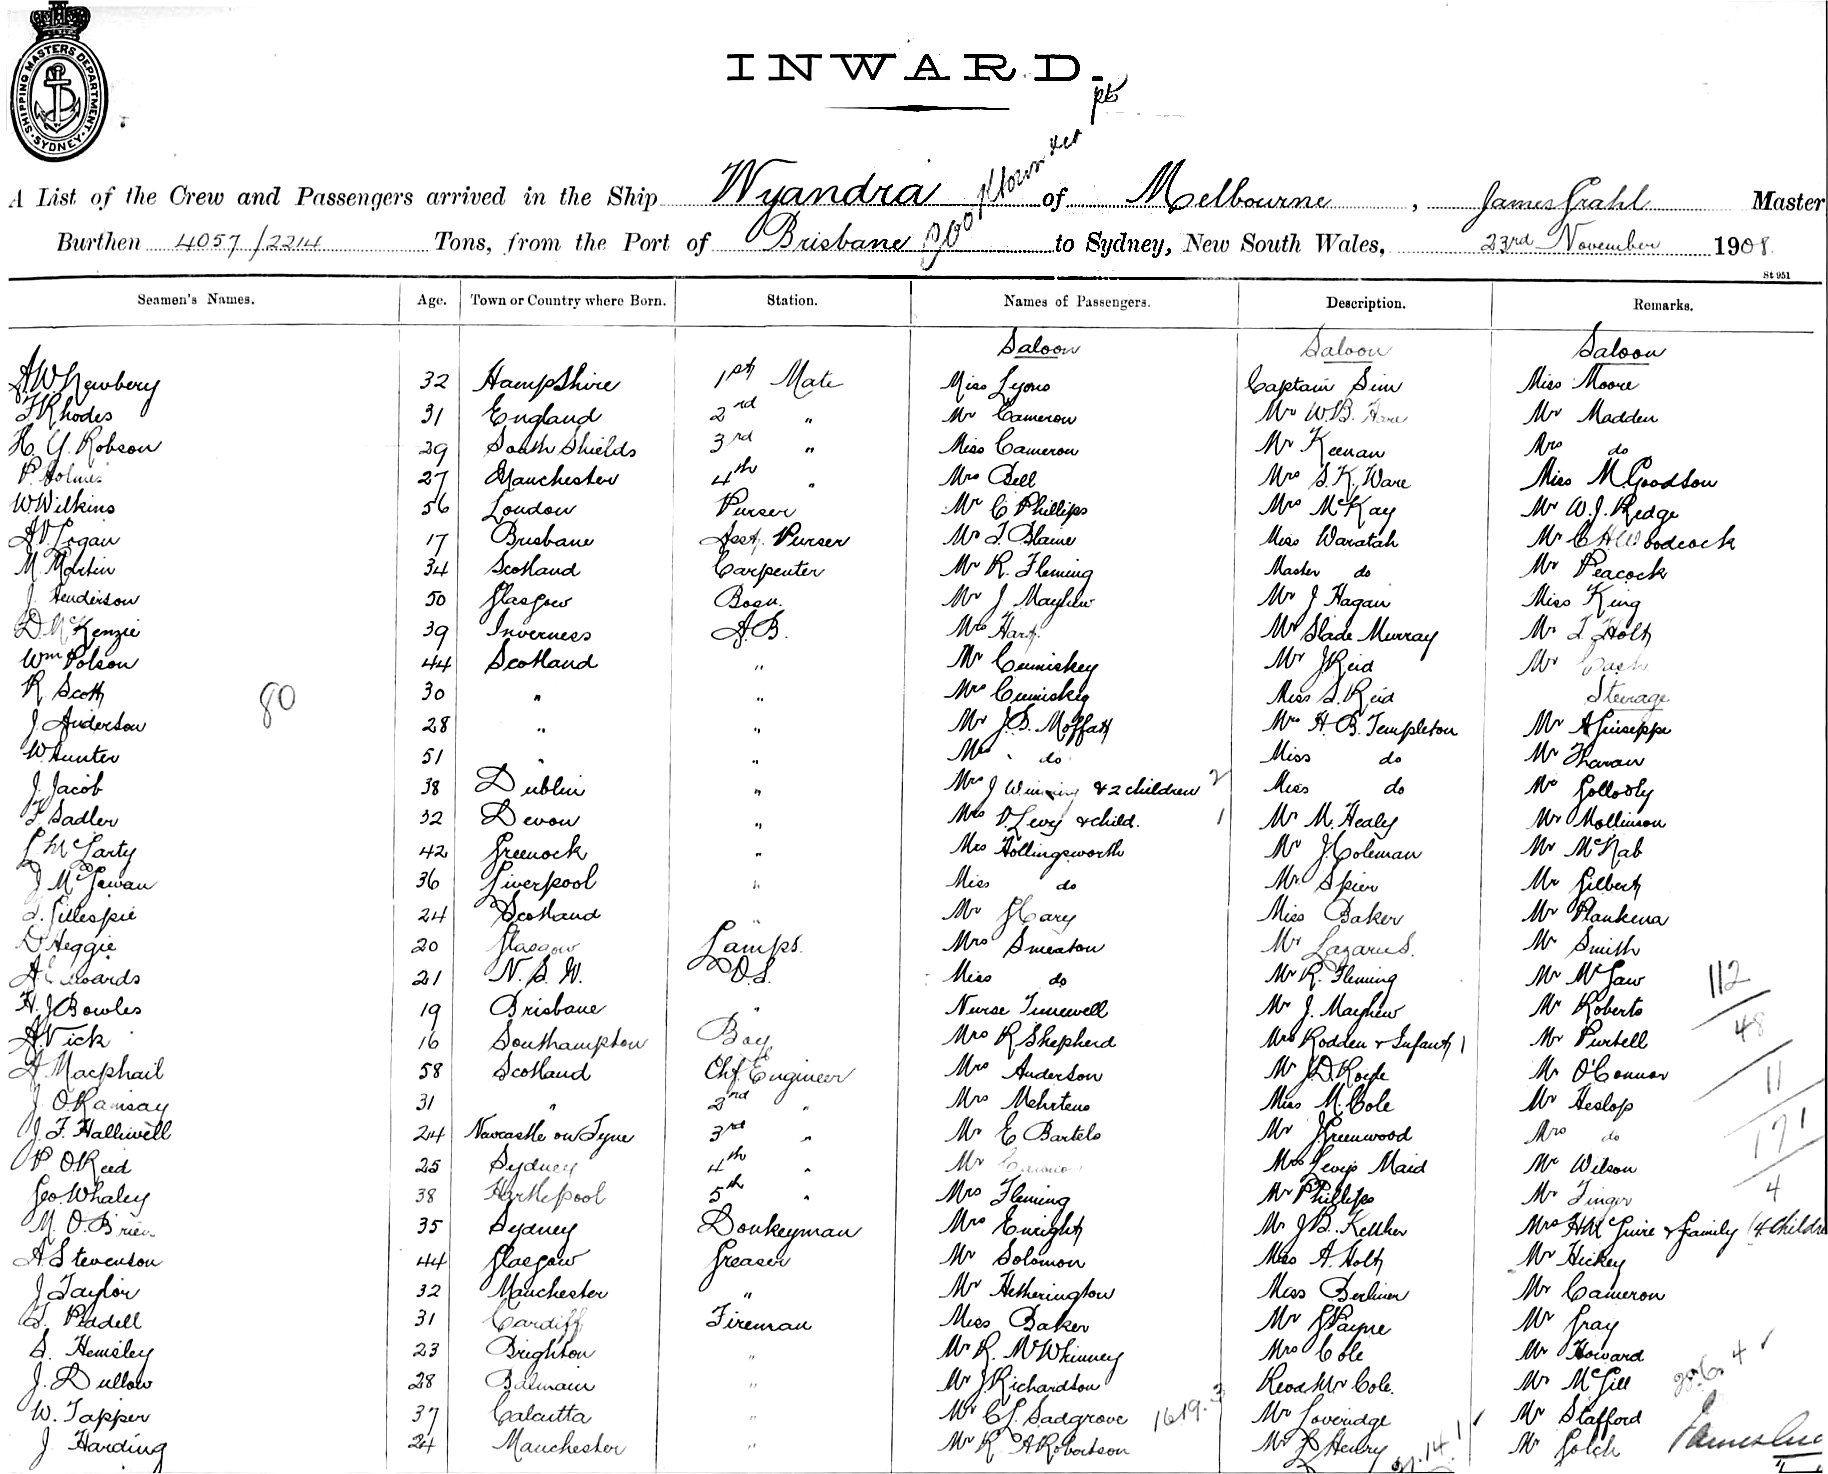 SHIPPING MASTERS DEPARTMENT
SYDNEY
INWARD.
A List of the Crew and Passengers arrived in the Ship Wyandra of Melbourne, James Grahl Master
Burthen 4057/2214 Tons, from the Port of Brisbane to Sydney, New South Wales, 23rd November 1908.
St 951
Seamen's Names. Age. Town or Country where Born. Station. Names of Passengers. Description. Remarks.
Saloon Saloon Saloon
A W Newbery 32 Hampshire 1st Mate Miss Lyons Captain Sim Miss Moore
F Rhodes 31 England 2nd " Mr Cameron Mr W.B. Hare Mr Madden
H Y Robson 29 South Shields 3rd " Miss Cameron Mr Keenan Mrs do
P. Holmes 27 Manchester 4th " Mrs Bell Mrs S.K. Ware Miss M Goodson
W Wilkins 56 London Purser Mr C Phillips Mrs McKay Mr W.J. Redge
A V Logan 17 Brisbane Asst. Purser Mr T Blaine Miss Waratah Mr C H Woodcock
M. Martin 34 Scotland Carpenter Mr R. Fleming Master do Mr Peacock
J Henderson 50 Glasgow Bosn. Mr J Mayhew Mr J Hagan Miss King
D McKenzie 39 Inverness A.B. Mrs Hart Mr Slade Murray Mr T Holt
Wm Polson 44 Scotland " Mr Cumiskey Mr J Reid Mr Cash
R Scott 30 " " Mrs Cumiskey Miss S. Reid Steerage
80
J. Anderson 28 " " Mr J.S. Moffatt Mrs H. B. Templeton Mr A Guiseppe
W. Hunter 51 " " Mrs do Miss do Mr Tharan
J. Jacob 38 Dublin " Mrs J Winning & 2 children 2 Miss do Mr Golloosly
F Sadler 32 Devon " Mrs V. Levy & child. 1 Mr M. Healy Mr Mollinson
L McLarty 42 Greenock " Mrs Hollingsworth Mr J Coleman Mr McNab
J McGowan 36 Liverpool " Miss do Mr Spier Mr Gilbert
T. Gillespie 24 Scotland " Mr G Cary Miss Baker Mr Plankena
D Heggie 20 Glasgow Lamps. Mrs Smeaton Mr Lazarus. Mr Smith
A Edwards 21 N.S.W. O.S. Miss do Mr R. Fleming Mr McGaw
H. J Bowles 19 Brisbane " Nurse Tunewell Mr J. Mayhew Mr Roberts
A Vick 16 Southampton Boy Mrs R Shepherd Mrs Rodden & Infant 1 Mr Purtell
A Macphail 58 Scotland Chf. Engineer Mrs Anderson Mr J.D Royle Mr O'Connor
J O Ramsay 31 " 2nd " Mrs Mehrtens Miss M. Cole Mr Heslop
J. F. Halliwell 24 Newcastle on Tyne 3rd " Mr E Bartels Mr J Greenwood Mrs do
P O Reid 25 Sydney 4th " Mr Cameron Mrs Levy's Maid Mr Wilson
Geo. Whaley 38 Hartlepool 5th " Mrs Fleming Mr Phillips Mr Finger
M. O Brien 35 Sydney Donkeyman Mrs Enright Mr J B. Kelsher Mrs H McGuire & family (4 childre
A Stevenson 44 Glasgow Greaser Mr Solomon Miss A. Holt Mr Hickey
J Taylor 32 Manchester " Mr Hetherington Miss Berliner Mr Cameron
T. Peddell 31 Cardiff Fireman Miss Baker Mr G Payne Mr Gray
S. Hemsley 23 Brighton " Mr R. McWhinney Mrs Cole Mr Howard
J. Dullow 28 Balmain " Mr J Richardson Revd Mr Cole. Mr McGill
W. Tapper 37 Calcutta " Mr C L Sadgrove 16.19.3 Mr Loveridge Mr Stafford
J Harding 24 Manchester " Mr R A Robertson Mr L Henry Mr Golch
112
48
11
171
4